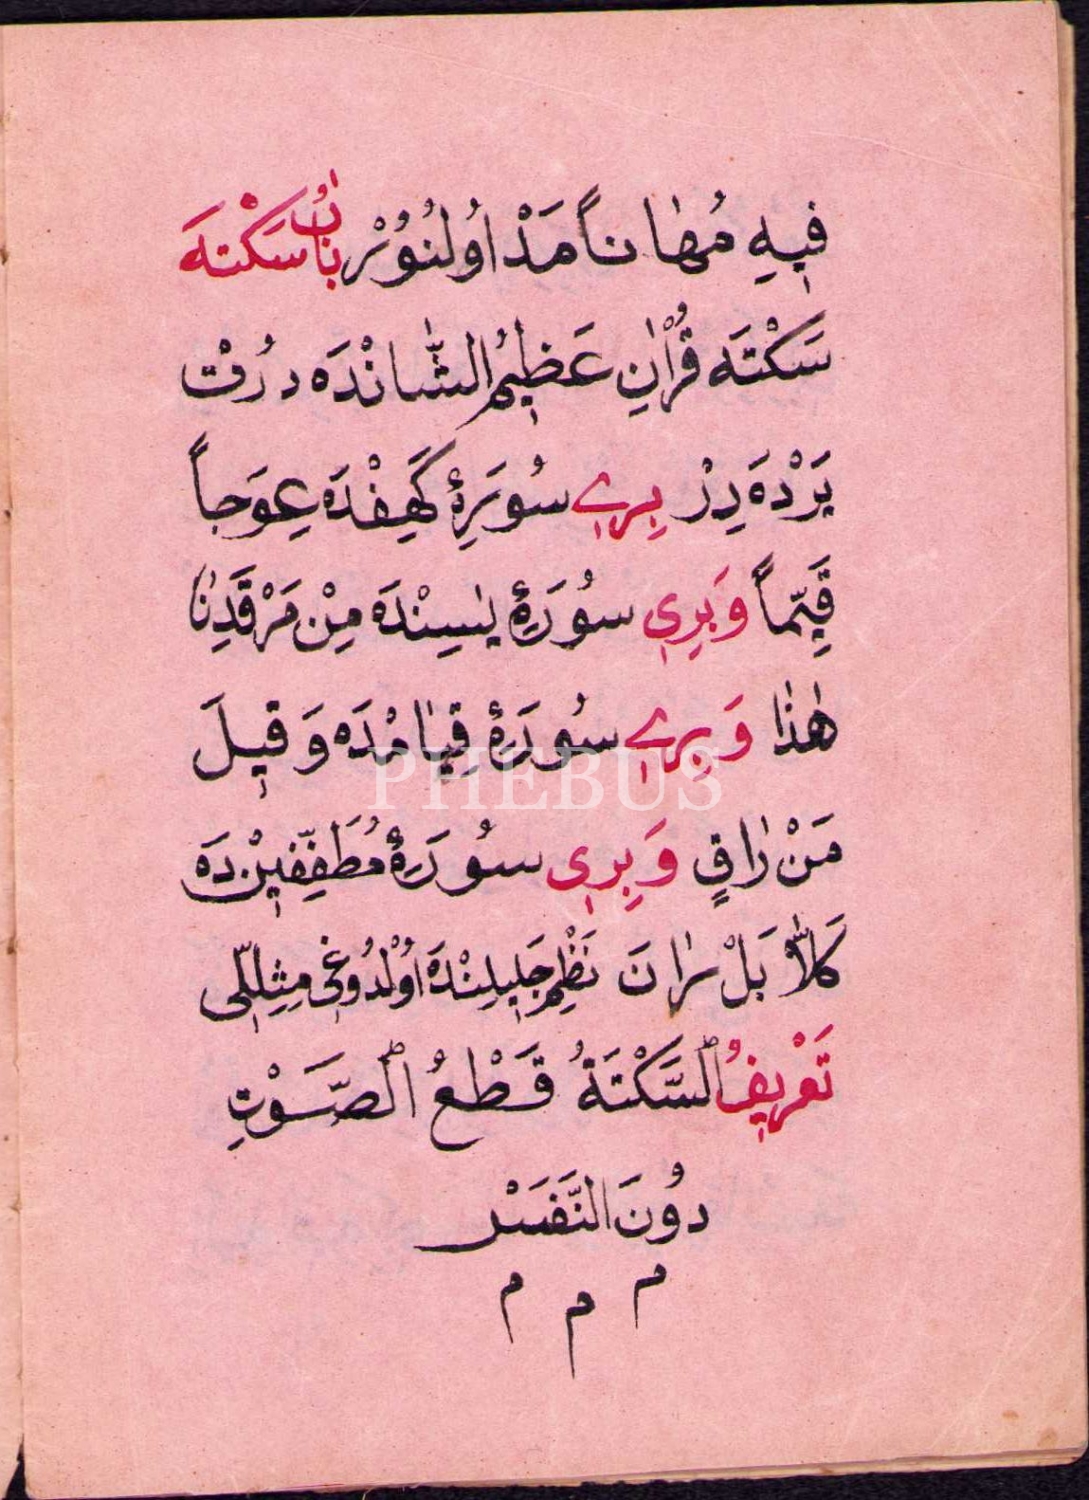 فِيهِ مُهَانًا مَدْ اُولُنُوُرْ بَابُ سَكْتَهَ
سَكْتَه قُرْاٰنِ عَظِيمُ الشَّانْدَه دُرْتْ
يَرْدَه دِرْ بِرِي سُورَۀِ كَهِفْدَه عِوَجاً
قَيِّماً وَبِرِي سُورَۀِ يٰسِينْدَه مِنْ مَرْقَدِنَا
هٰذَا وَبِرِي سُورَۀِ قِيَامْدَه وَقِيلَ
مَنْ رَاقٍ وَبِرِي سُورَۀِ مُطَفِّفِينْ دَه
كَلَّا بَلْ رَانَ نَظْمِ جَلِيلِنْدَه اُولْدُوغِى مِثِللِّى
تَعْرِيفُ السَّكْتَةُ قَطْعُ الصَّوْتِ
دُونَ النَّفَسْ
م م م
PHEBUS